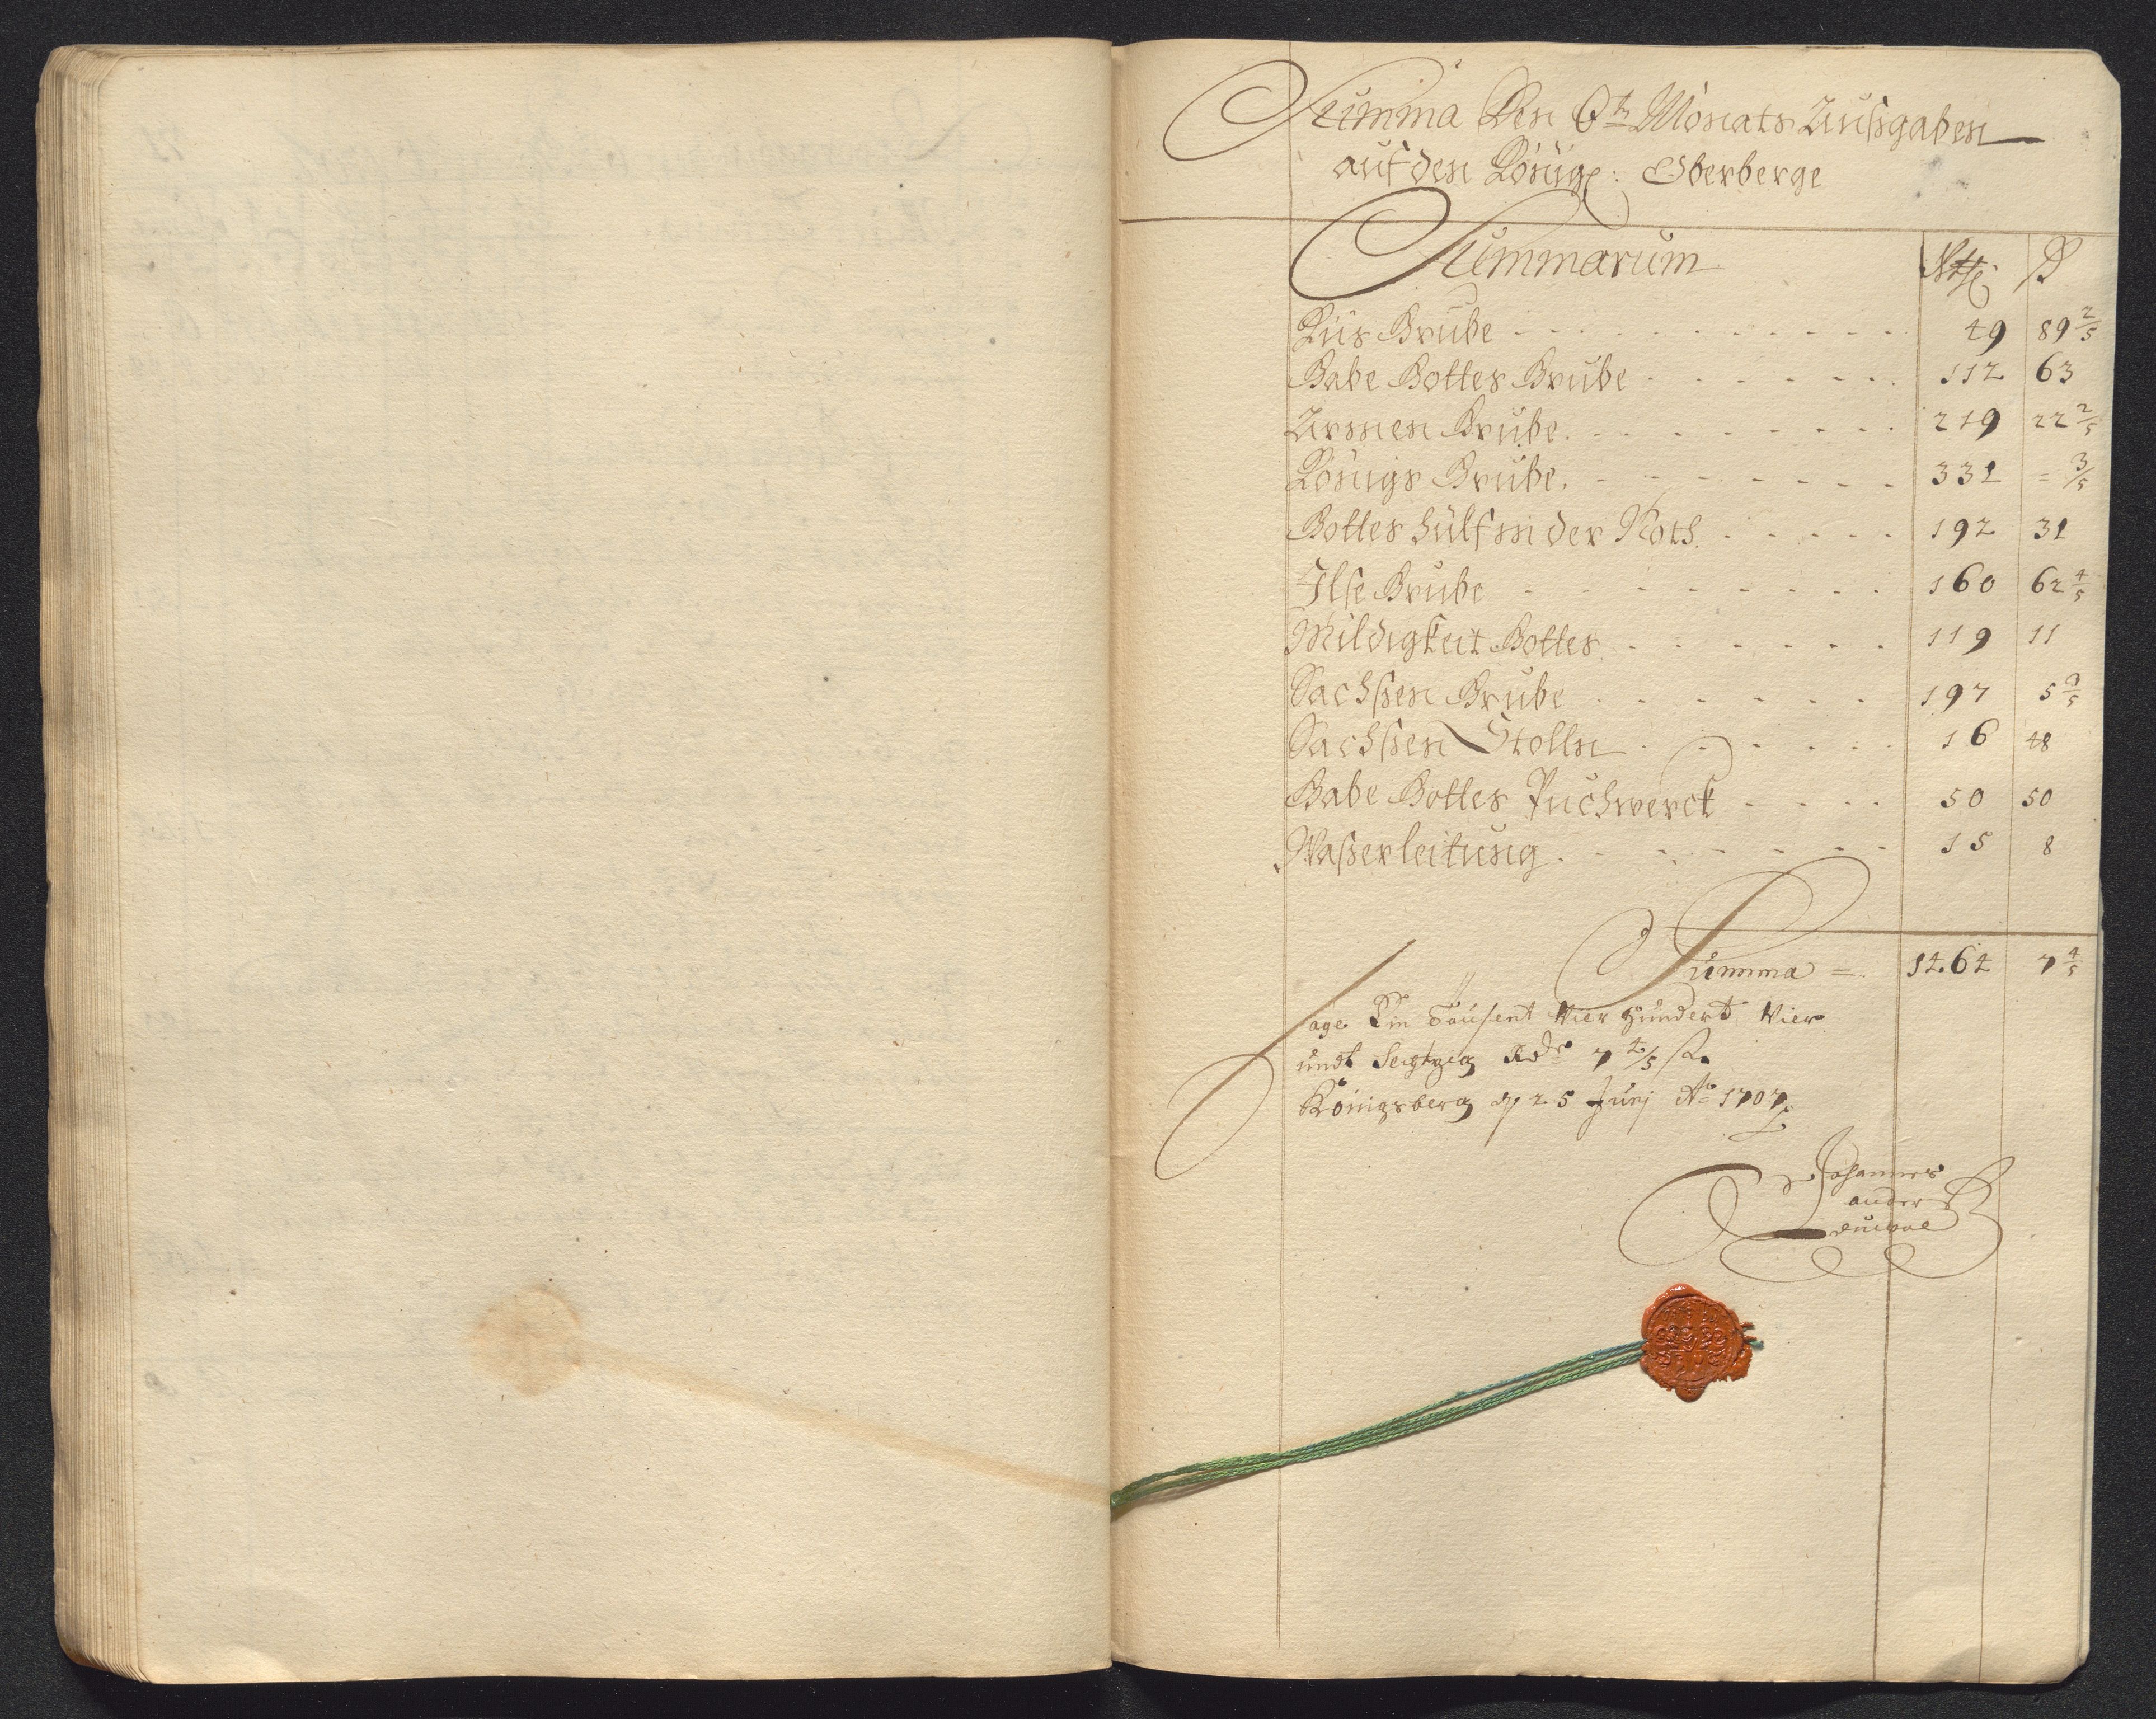 Summa Des 6t Monats Außgaben
auf den Königl: Oberberge
Summarum Rthl ß
Küs Grube 49 89 2/5
Gabe Gottes Grube 112 63
Armen Grube 219 22 2/5
Königs Grube 331 = 3/5
Gottes Hülf in der Noth 192 31
Ilse Grube 160 62 4/5
Mildigkeit Gottes 119 11
Sachßen Grube 197 5
Sachßen Stolln 16 48
Gabe Gottes Puchwerck 50 50
Waßerleitung 15 8
Summa = 1464 7 4/5
Sage Ein Tausent Vier Hundert Vier
undt Sechtzig Rdr 7 4/5 ß
Königsberg d 25 Junj Ao 1707
Johannes